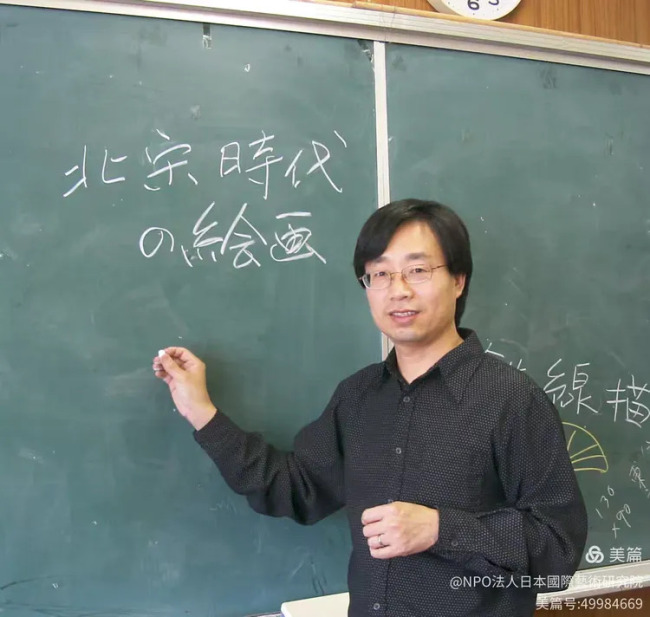 北宋時代
の絵画
線描
130
+90
美篇
@NPO法人日本國際藝術研究院
美篇号:49984669